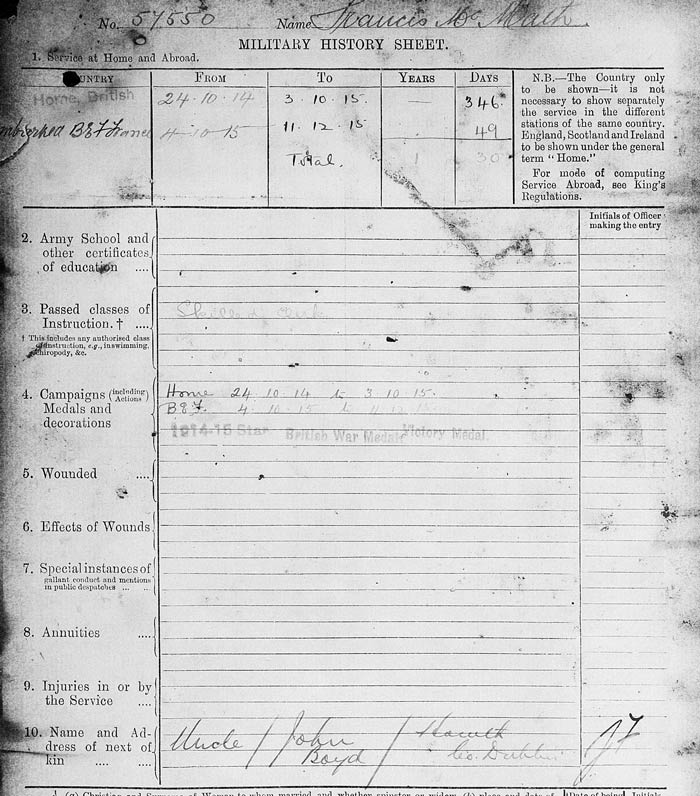 No. 57550 Name Francis Mc Math
MILITARY HISTORY SHEET.
1. Service at Home and Abroad.
COUNTRY FROM TO YEARS DAYS
Home, British 24·10·14 3·10·15. — 346
Embarked B.E.F. France 4·10·15 11·12·15 49
Total. 1 30
N.B.—The Country only
to be shown—it is not
necessary to show separately
the service in the different
stations of the same country.
England, Scotland and Ireland
to be shown under the general
term "Home."
For mode of computing
Service Abroad, see King's
Regulations.
Initials of Officer
making the entry
2. Army School and
other certificates
of education ....
3. Passed classes of
Instruction. † ....
† This includes any authorised class
of instruction, e.g., in swimming,
chiropody, &c.
Skilled Clerk
4. Campaigns (including Actions)
Medals and
decorations
Home 24 10 14 to 3 10 15.
B.E.F. 4 10 15 to 11 12 15
1914-15 Star British War Medal Victory Medal.
5. Wounded ....
6. Effects of Wounds
7. Special instances of
gallant conduct and mentions
in public despatches ... ...
8. Annuities ....
9. Injuries in or by
the Service ....
10. Name and Ad-
dress of next of
kin .... ....
Uncle / John Boyd / Howth
Co. Dublin